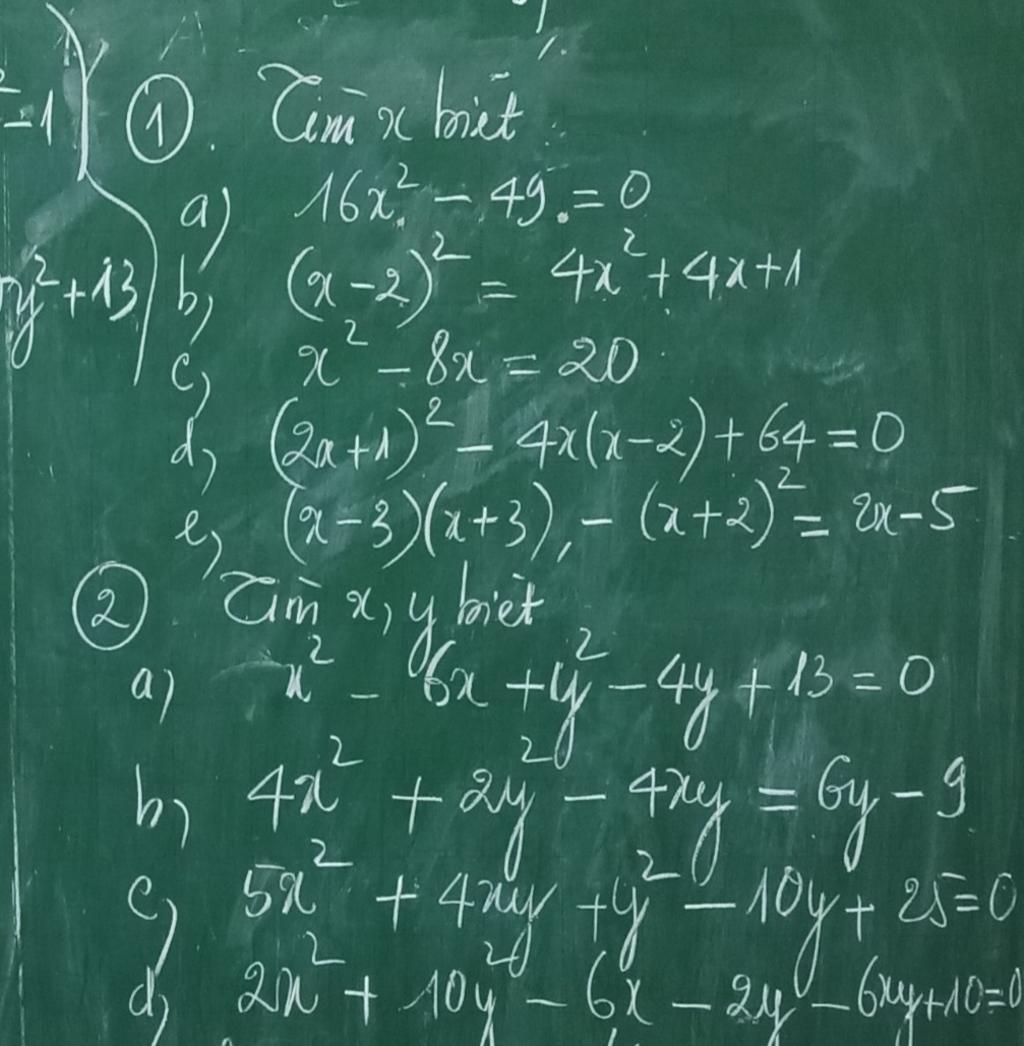 ²-1
① Tìm x biết
a) 16x² - 49 = 0
y² + 13
b, (x-2)² = 4x² + 4x+1
c, x² - 8x = 20
d, (2x+1)² - 4x(x-2) + 64 = 0
e, (x-3)(x+3) - (x+2)² = 2x-5
② Tìm x, y biết
a) x² - 6x + y² - 4y + 13 = 0
b, 4x² + 2y² - 4xy = 6y - 9
c, 5x² + 4xy + y² - 10y + 25 = 0
d, 2x² + 10y² - 6x - 2y - 6xy + 10 = 0